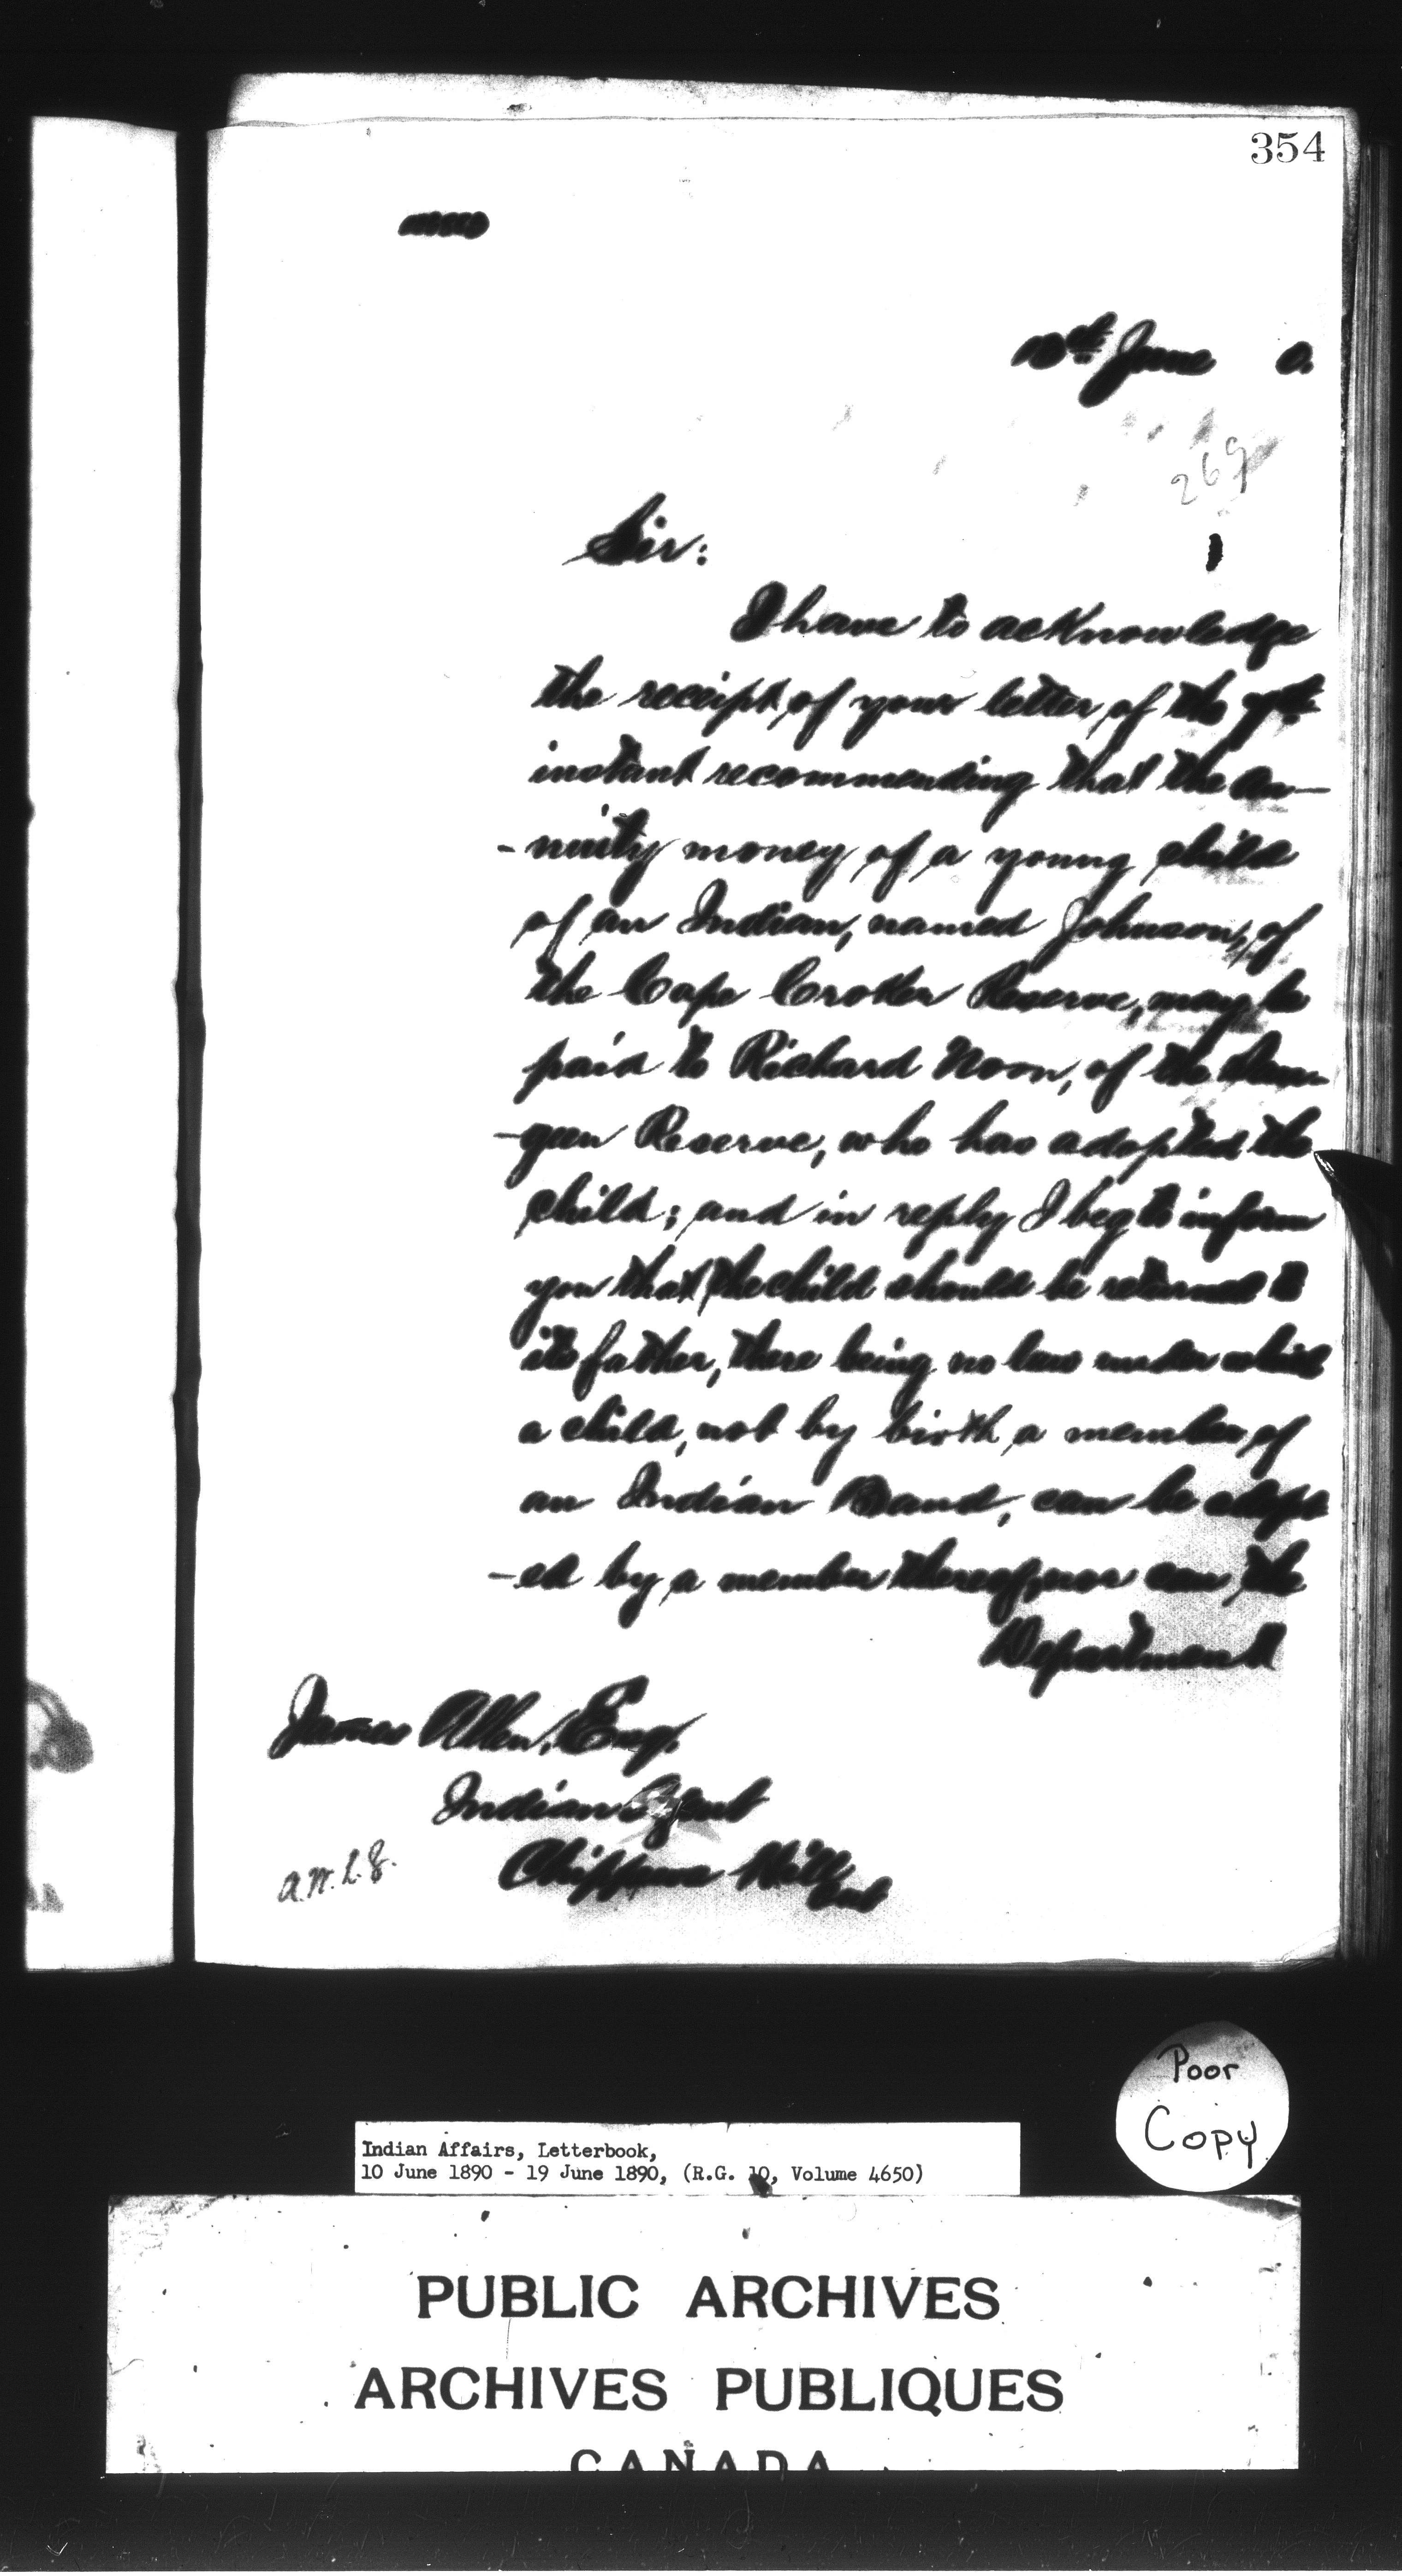 354
June 0.
269
Sir:
I have to acknowledge
the receipt of your letter of the 7th
instant recommending that the an-
-nuity money of a young child
of an Indian, named Johnson, of
the Cape Croker Reserve, may be
paid to Richard Noon, of the Sau-
-geen Reserve, who has adopted the
child; and in reply I beg to inform
you that the child should be returned to
its father, there being no law under which
a child, not by birth a member of
an Indian Band, can be adopt
-ed by a member thereof, nor can the
Department
James Allen, Esq.
Indian Agent
Chippewa Hill
Ont
Poor
Copy
Indian Affairs, Letterbook,
10 June 1890 - 19 June 1890, (R.G. 10, Volume 4650)
PUBLIC ARCHIVES
ARCHIVES PUBLIQUES
CANADA